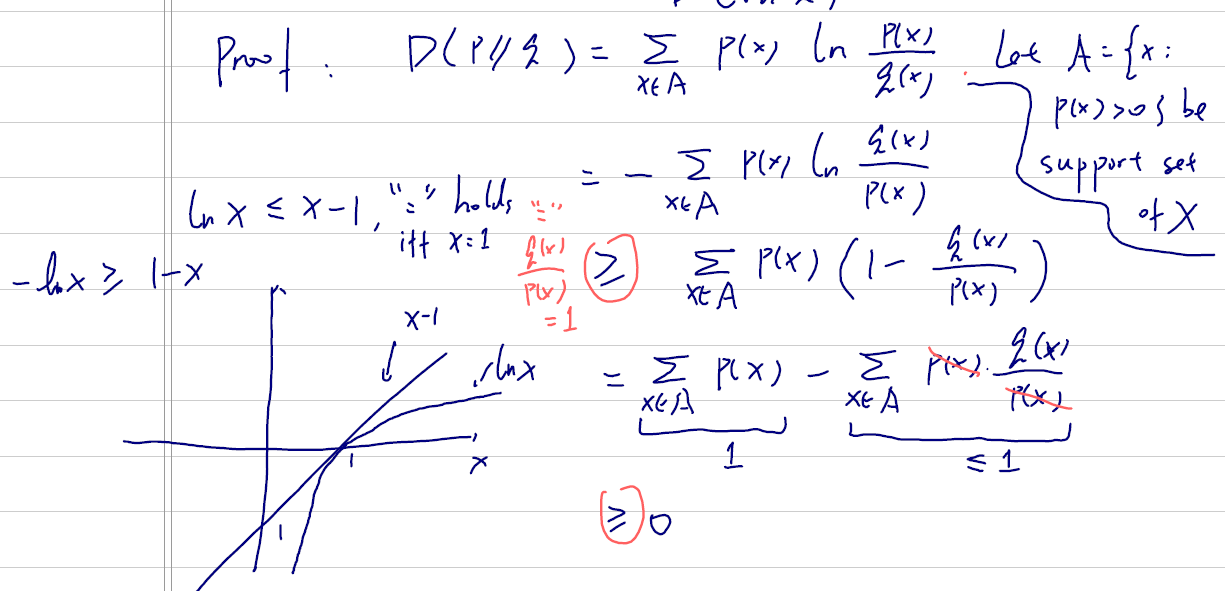 Proof : D(P//q) = Σ_{x∈A} P(x) ln P(x)/q(x) . Let A = {x :
P(x)>0} be
support set
of X
= − Σ_{x∈A} P(x) ln q(x)/P(x)
ln x ≤ x−1, "=" holds
iff x=1
−ln x ≥ 1−x
"="
q(x)/P(x)
=1
≥ Σ_{x∈A} P(x) (1 − q(x)/P(x))
x−1
ln x
1
x
1
= Σ_{x∈A} P(x) − Σ_{x∈A} P(x) · q(x)/P(x)
1
≤ 1
≥ 0